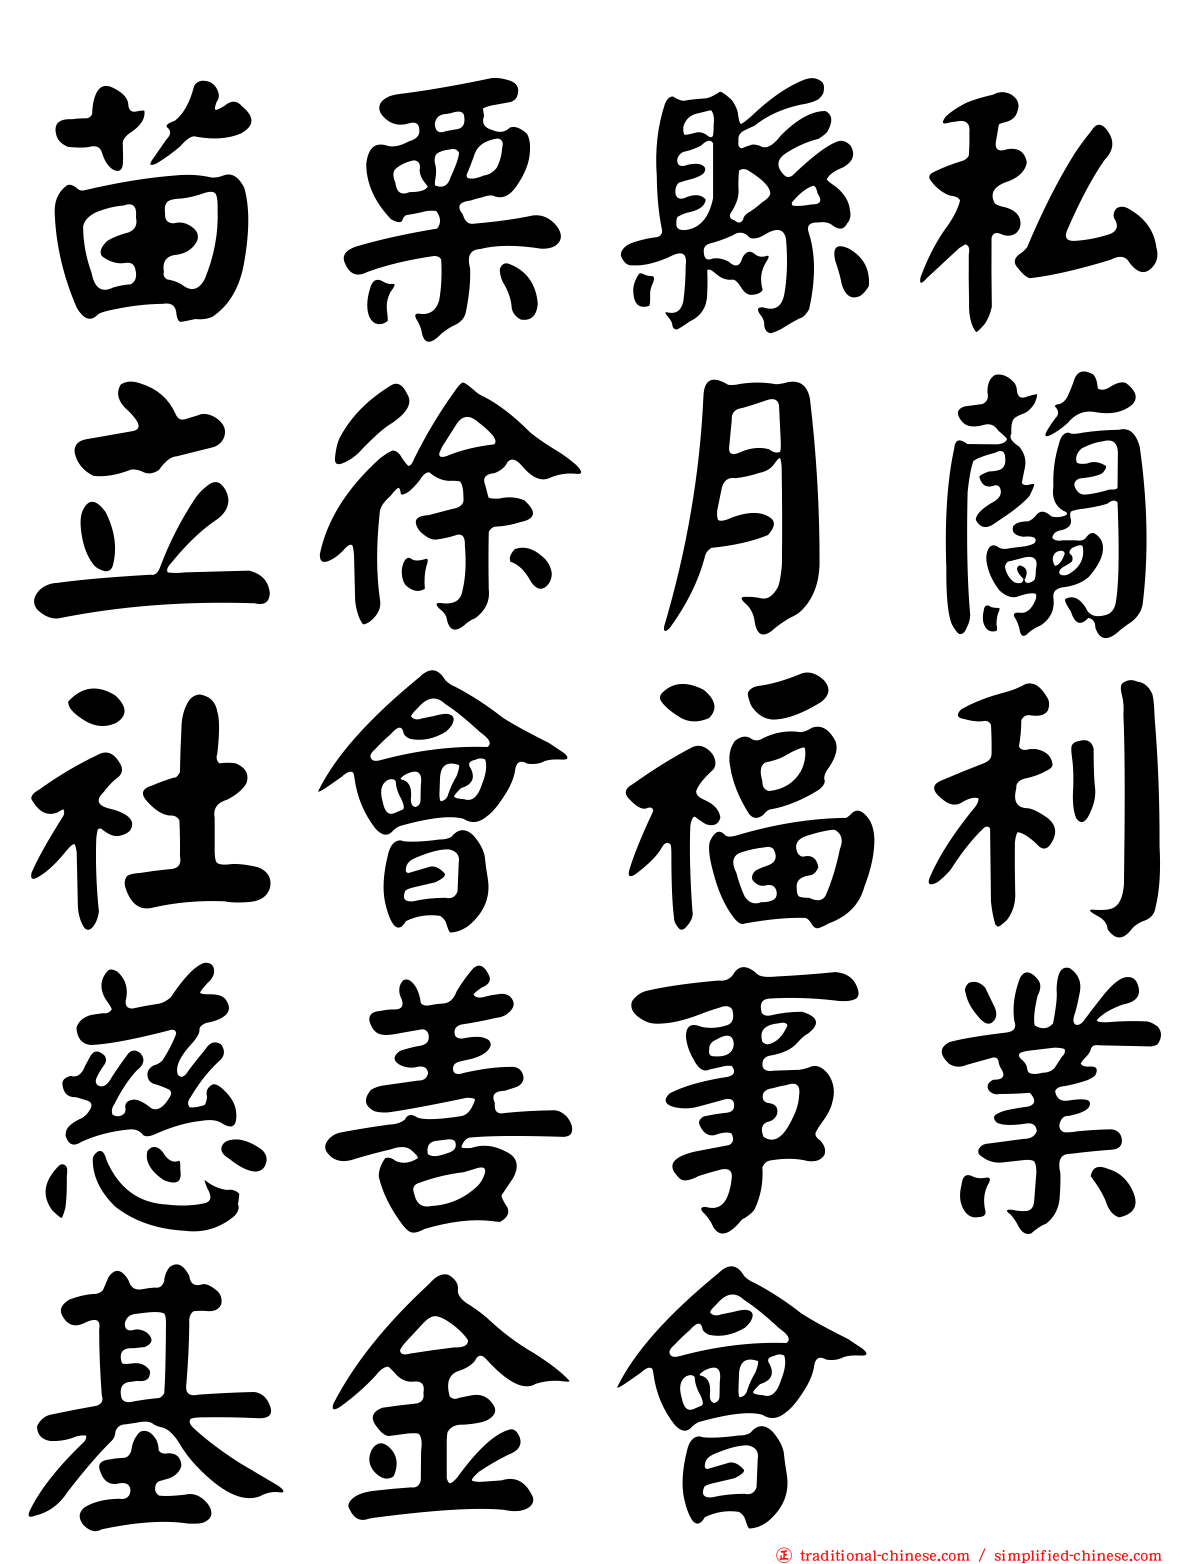 苗栗縣私
立徐月蘭
社會福利
慈善事業
基金會
正 traditional-chinese.com / simplified-chinese.com